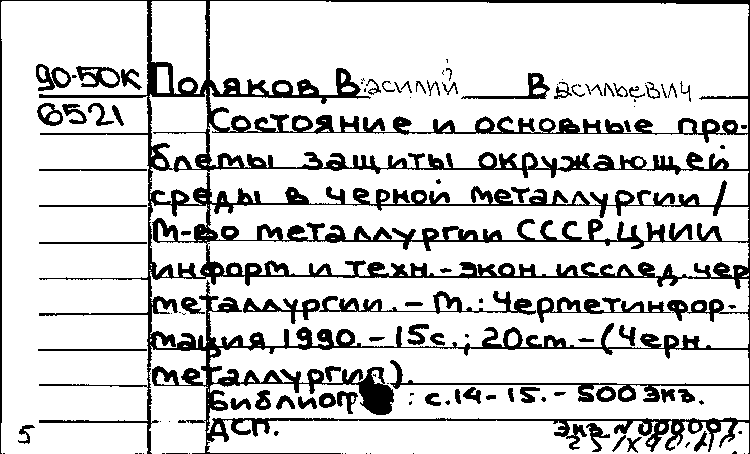 90-50К Поляков, Василий Васильевич
6521 Состояние и основные про-
блемы защиты окружающей
среды в черной металлургии /
М-во металлургии СССР, ЦНИИ
информ. и техн.-экон. исслед. чер
металлургии. - М.: Черметинфор-
мация, 1990. - 15с.; 20см. - (Черн.
металлургия).
Библиогр : с.14-15. - 500 экз.
5 ДСП. Экз. N 000007.